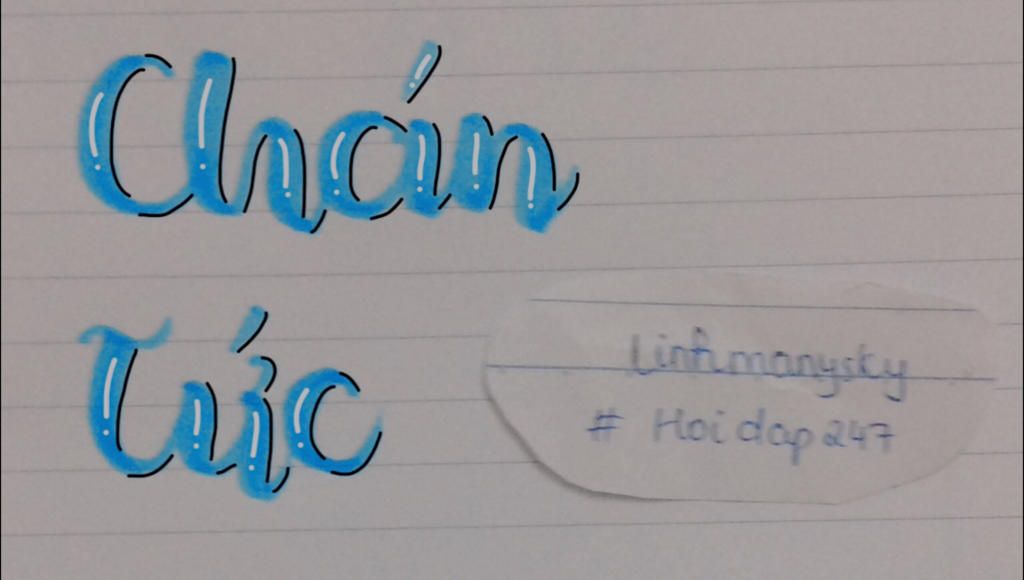 Chán
Tức
Linhmanysky
# Hoi dap 247